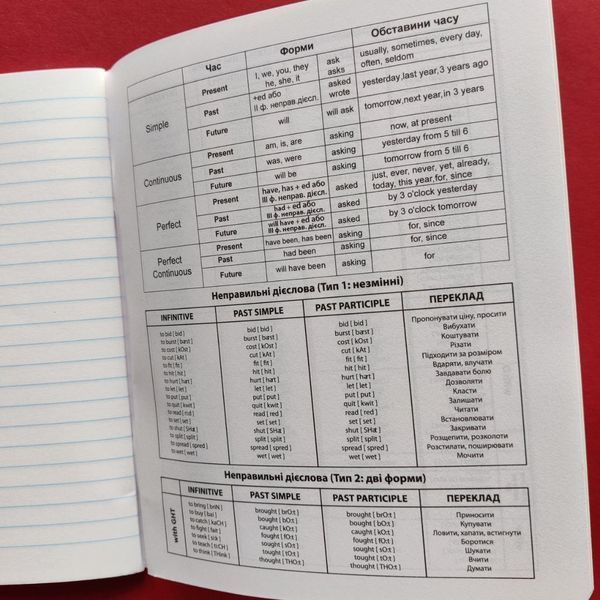 Час Форми Обставини часу
Simple Present I, we, you, they ask usually, sometimes, every day,
he, she, it asks often, seldom
Past +ed або asked yesterday,last year,3 years ago
II ф. неправ.дієсл. wrote
Future will will ask tomorrow,next year,in 3 years
Continuous Present am, is, are asking now, at present
Past was, were asking yesterday from 5 till 6
Future will be asking tomorrow from 5 till 6
Perfect Present have, has + ed або asked just, ever, never, yet, already,
III ф. неправ. дієсл. today, this year,for, since
Past had + ed або asked by 3 o'clock yesterday
III ф. неправ. дієсл.
Future will have + ed або asked by 3 o'clock tomorrow
III ф. неправ. дієсл.
Perfect Continuous Present have been, has been asking for, since
Past had been asking for, since
Future will have been asking for
Неправильні дієслова (Тип 1: незмінні)
INFINITIVE PAST SIMPLE PAST PARTICIPLE ПЕРЕКЛАД
to bid [ bid ] bid [ bid ] bid [ bid ] Пропонувати ціну, просити
to burst [ bəst ] burst [ bəst ] burst [ bəst ] Вибухати
to cost [ kOst ] cost [ kOst ] cost [ kOst ] Коштувати
to cut [ kAt ] cut [ kAt ] cut [ kAt ] Різати
to fit [ fit ] fit [ fit ] fit [ fit ] Підходити за розміром
to hit [ hit ] hit [ hit ] hit [ hit ] Вдаряти, влучати
to hurt [ hət ] hurt [ hət ] hurt [ hət ] Завдавати болю
to let [ let ] let [ let ] let [ let ] Дозволяти
to put [ put ] put [ put ] put [ put ] Класти
to quit [ kwit ] quit [ kwit ] quit [ kwit ] Залишати
to read [ rɪd ] read [ red ] read [ red ] Читати
to set [ set ] set [ set ] set [ set ] Встановлювати
to shut [ SHət ] shut [ SHət ] shut [ SHət ] Закривати
to split [ split ] split [ split ] split [ split ] Розщепити, розколоти
to spread [ spred ] spread [ spred ] spread [ spred ] Розстилати, поширювати
to wet [ wet ] wet [ wet ] wet [ wet ] Мочити
Неправильні дієслова (Тип 2: дві форми)
INFINITIVE PAST SIMPLE PAST PARTICIPLE ПЕРЕКЛАД
with GHT
to bring [ briN ] brought [ brO:t ] brought [ brO:t ] Приносити
to buy [ bai ] bought [ bO:t ] bought [ bO:t ] Купувати
to catch [ kaCH ] caught [ kO:t ] caught [ kO:t ] Ловити, хапати, встигнути
to fight [ fait ] fought [ fO:t ] fought [ fO:t ] Боротися
to seek [ sɪk ] sought [ sO:t ] sought [ sO:t ] Шукати
to teach [ tɪ:CH ] tought [ tO:t ] tought [ tO:t ] Вчити
to think [ THink ] thought [ THO:t ] thought [ THO:t ] Думати